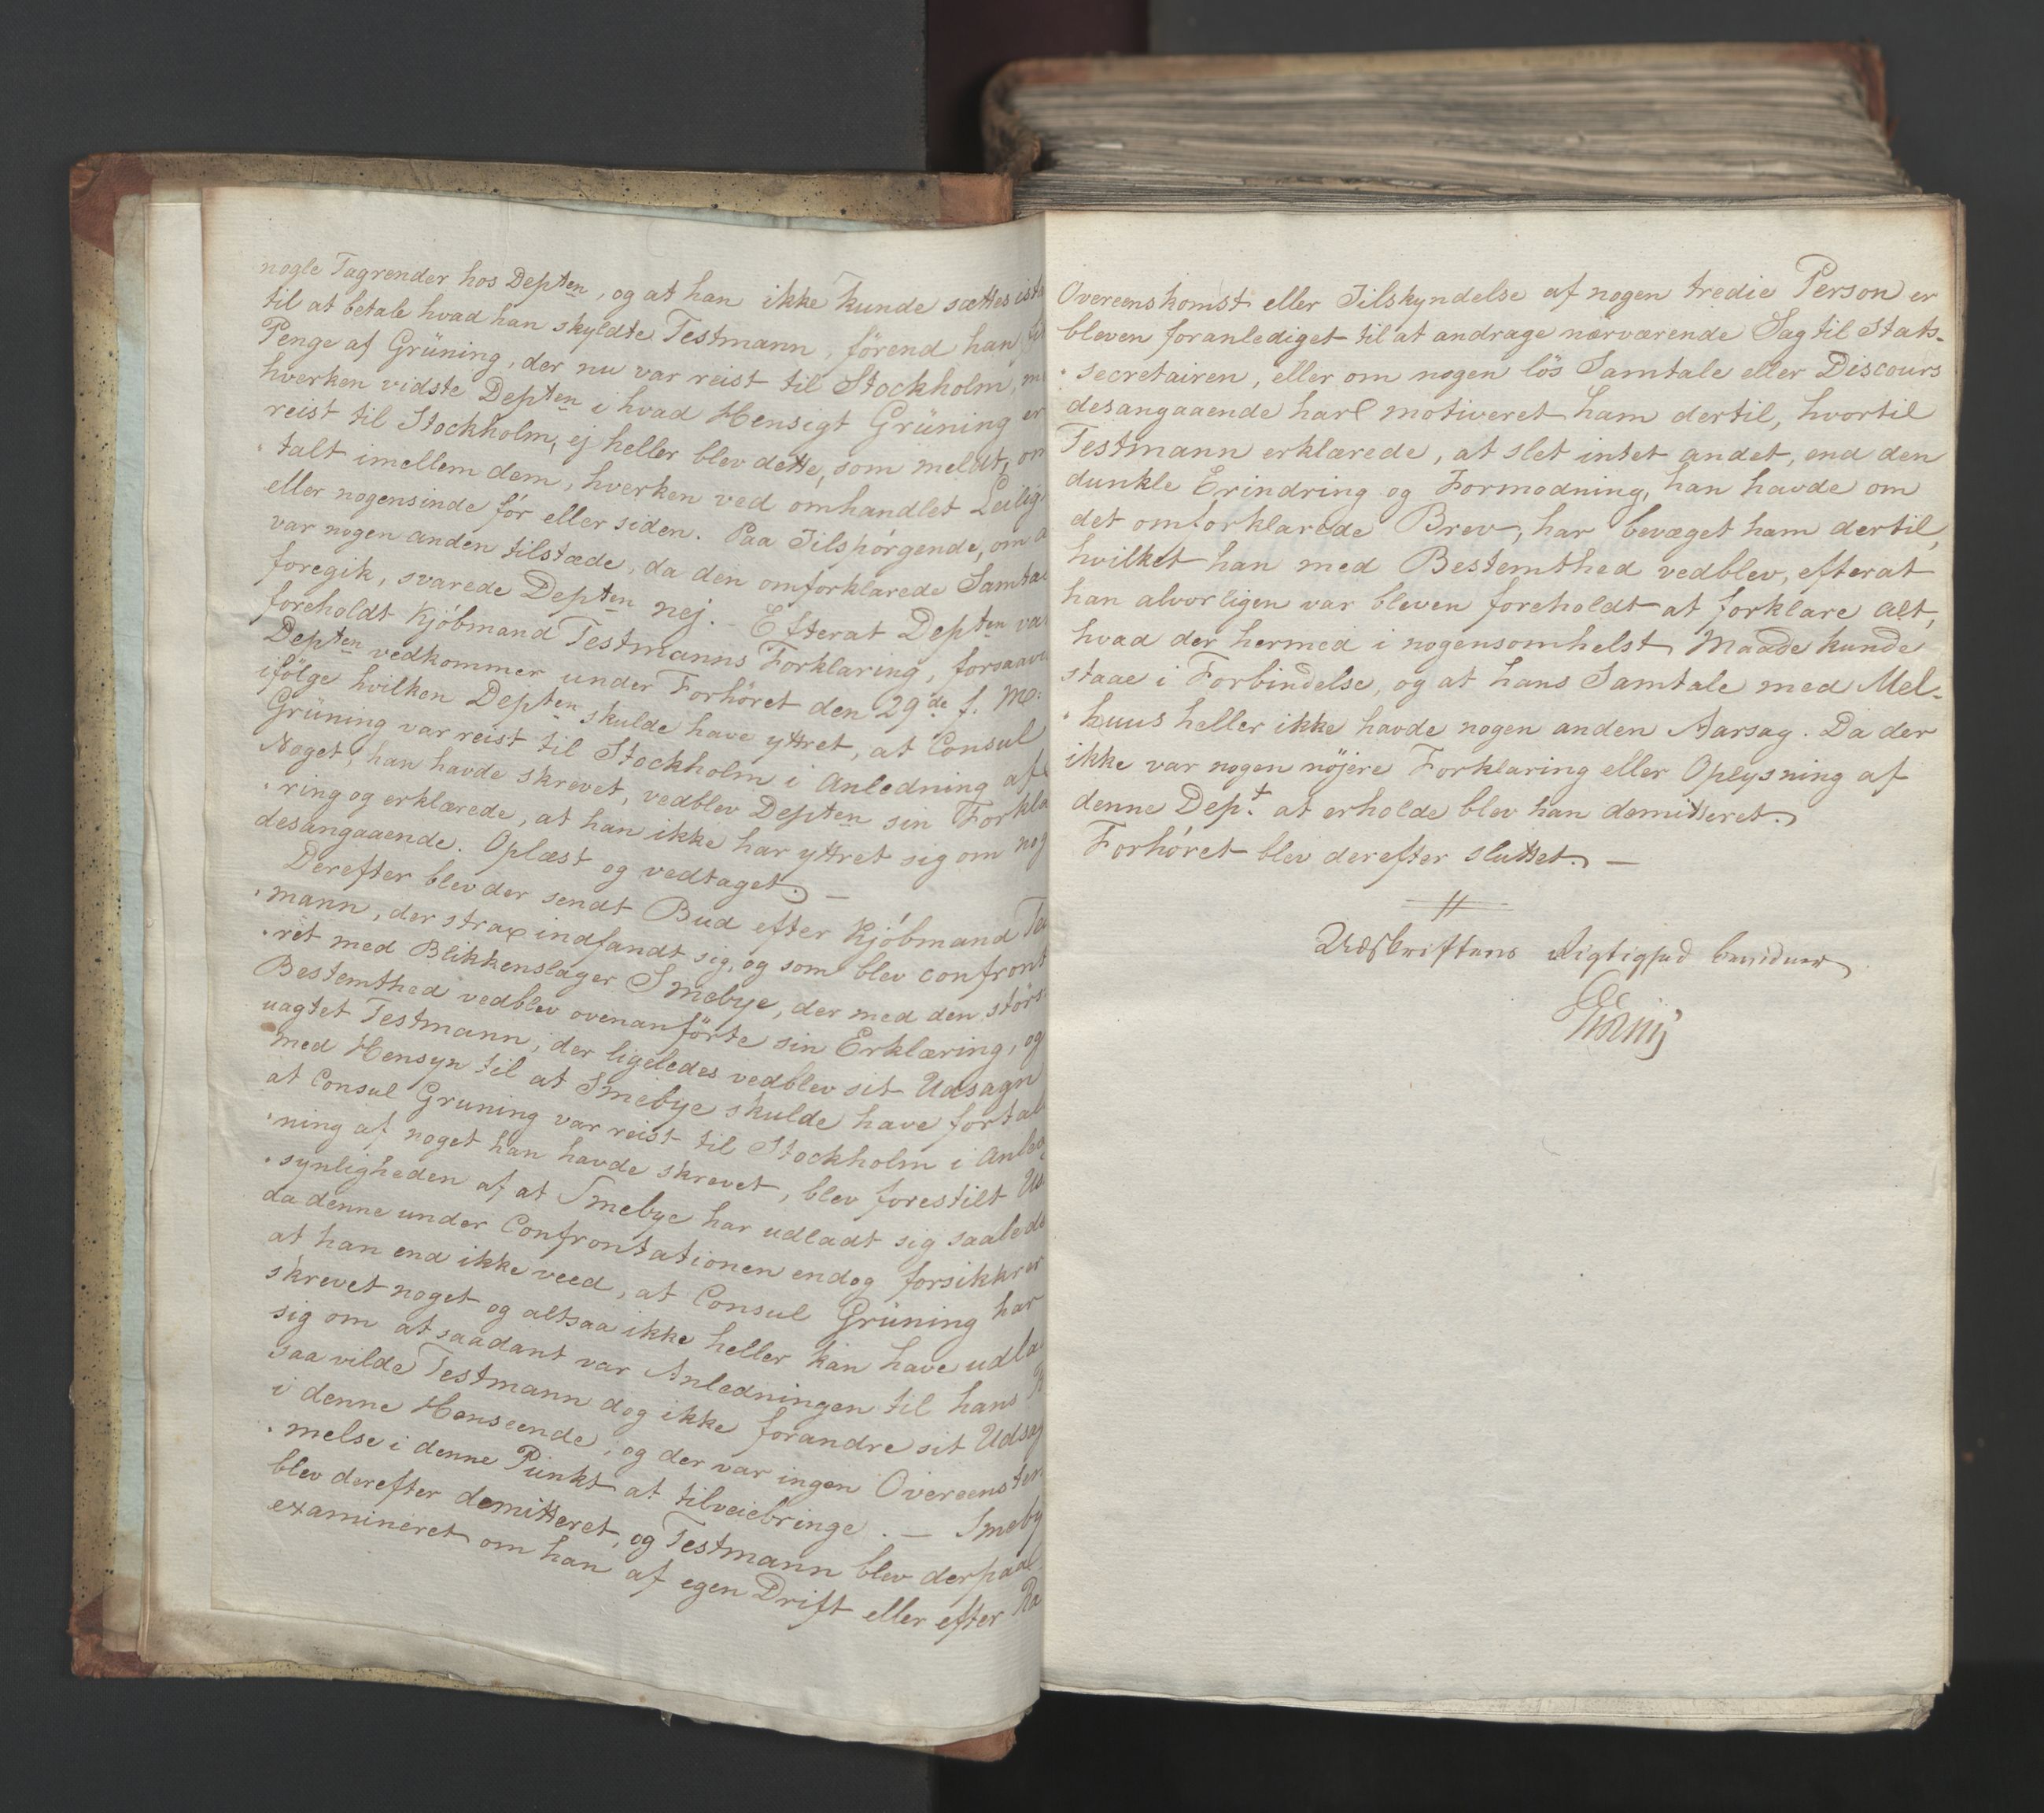 nogle Tagrender hos Depten, og at han ikke kunde sættes ista
til at betale hvad han skyldte Testmann, förend han
Penge af Grüning, der nu var reist til Stockholm,
hverken vidste Depten i hvad Hensigt Grüning er
reist til Stockholm, ej heller blev dette, som meldt, om
talt imellem dem, hverken ved omhandlet Leilig
eller nogensinde för eller siden. Paa Tilspörgende, om
var nogen anden tilstæde, da den omforklarede Samta
foregik, svarede Depten nej. - Efterat Depten var
foreholdt Kjöbmand Testmanns Forklaring, forsaavi
Depten vedkommer under Forhöret den 29de f. M:
ifölge hvilken Depten skulde have yttret, at Consul
Grüning var reist til Stockholm i Anledning af
Noget, han havde skrevet, vedblev Depten sin Forkla
ring og erklærede, at han ikke har yttret sig om nog
desangaaende. Oplæst og vedtaget. —
Derefter blev der sendt Bud efter Kjöbmand Te
mann, der strax indfandt sig, og som blev confront
ret med Blikkenslager Smebye, der med den störs
Bestemthed vedblev ovenanförte sin Erklæring, og
uagtet Testmann, der ligeledes vedblev sit Udsagn
med Hensyn til at Smebye skulde have fortalt
at Consul Gruning var reist til Stockholm i Anled
ning af noget han havde skrevet, blev forestilt Us
synligheden af at Smebye har udladt sig saalede
da denne under Confrontationen endog forsikkrer
at han end ikke veed, at Consul Grüning har
skrevet noget og altsaa ikke heller kan have udla
sig om at saadant var Anledningen til hans
saa vilde Testmann dog ikke forandre sit Udsag
i denne Henseende, og der var ingen Overeenstem
melse i denne Punkt at tilveiebringe. — Smeby
blev derefter demitteret, og Testmann blev derpaa
examineret om han af egen Drift eller efter Ra
Overeenskomst eller Tilskyndelse af nogen tredie Person er
bleven foranlediget til at andrage nærværende Sag til Stats-
secretairen, eller om nogen lös Samtale eller Discours
desangaaende har motiveret ham dertil, hvortil
Testmann erklærede, at slet intet andet, end den
dunkle Erindring og Formodning, han havde om
det omforklarede Brev, har bevæget ham dertil,
hvilket han med Bestemthed vedblev, efterat
han alvorligen var bleven foreholdt at forklare alt,
hvad der hermed i nogensomhelst Maade kunde
staae i Forbindelse, og at hans Samtale med Mel-
huus heller ikke havde nogen anden Aarsag. Da der
ikke var nogen nöjere Forklaring eller Oplysning af
denne Dept. at erholde blev han demitteret.
Forhöret blev derefter sluttet. —
Udskriftens Rigtighed bevidner